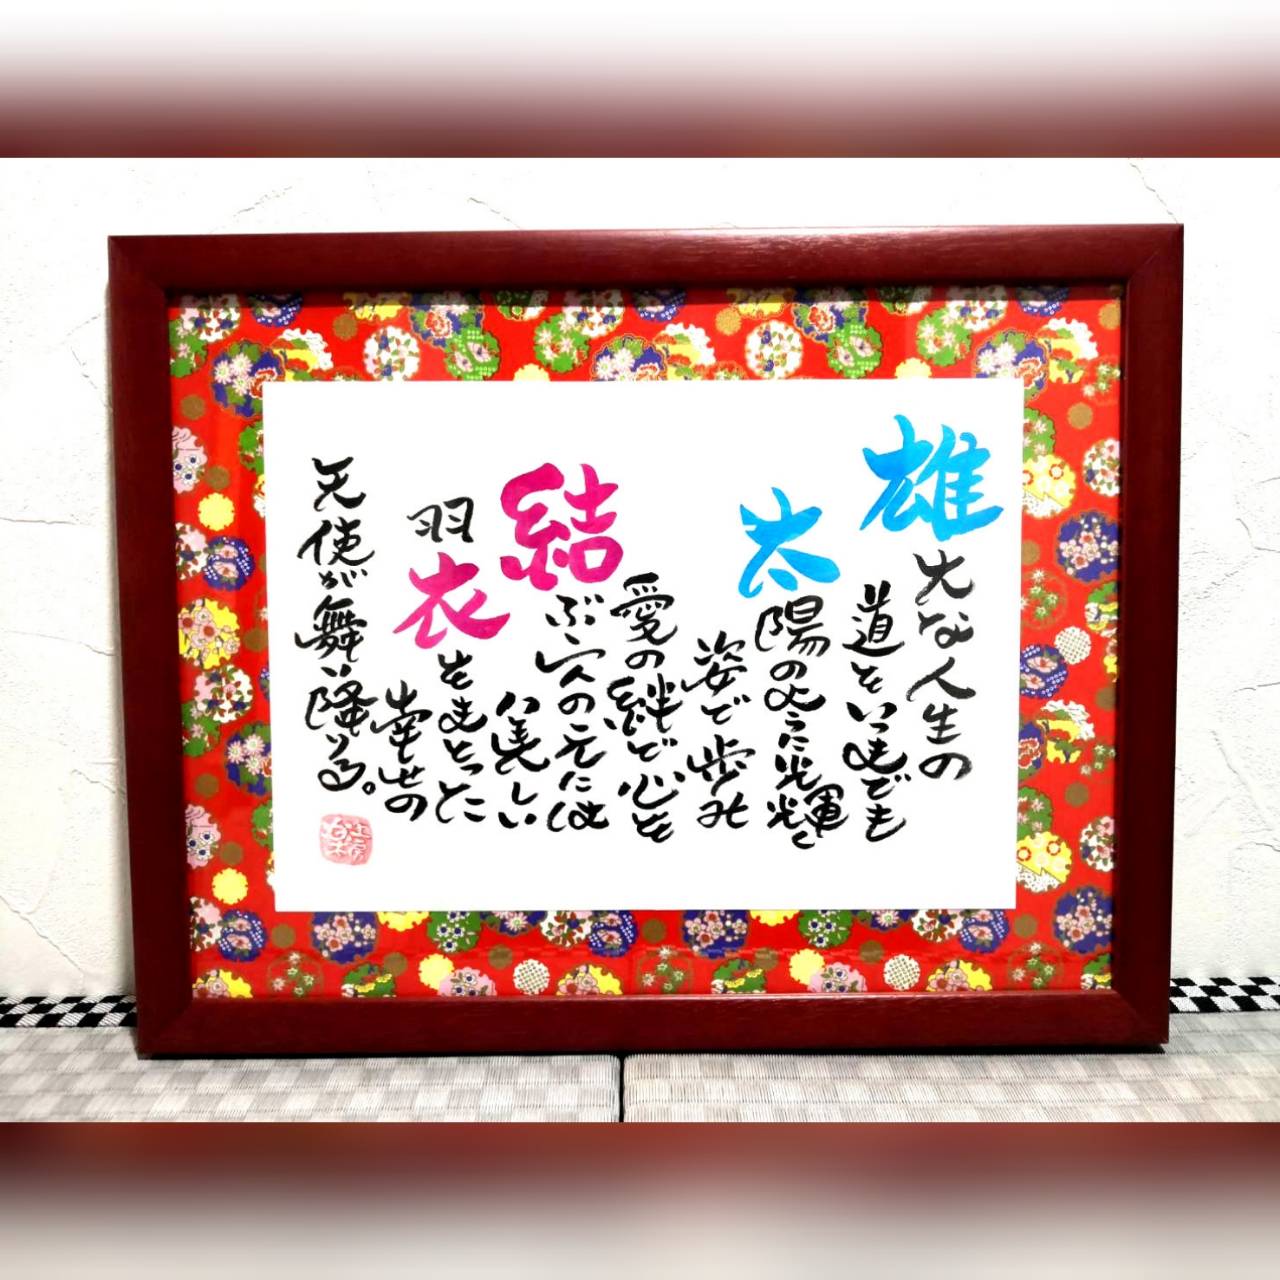 雄大な人生の
道をいつまでも
太陽のように光輝く
姿で歩み
愛の絆で心を
結ぶ二人の元には
美しい
羽衣をまとった
幸せの
天使が舞い降りる。
工房
楽